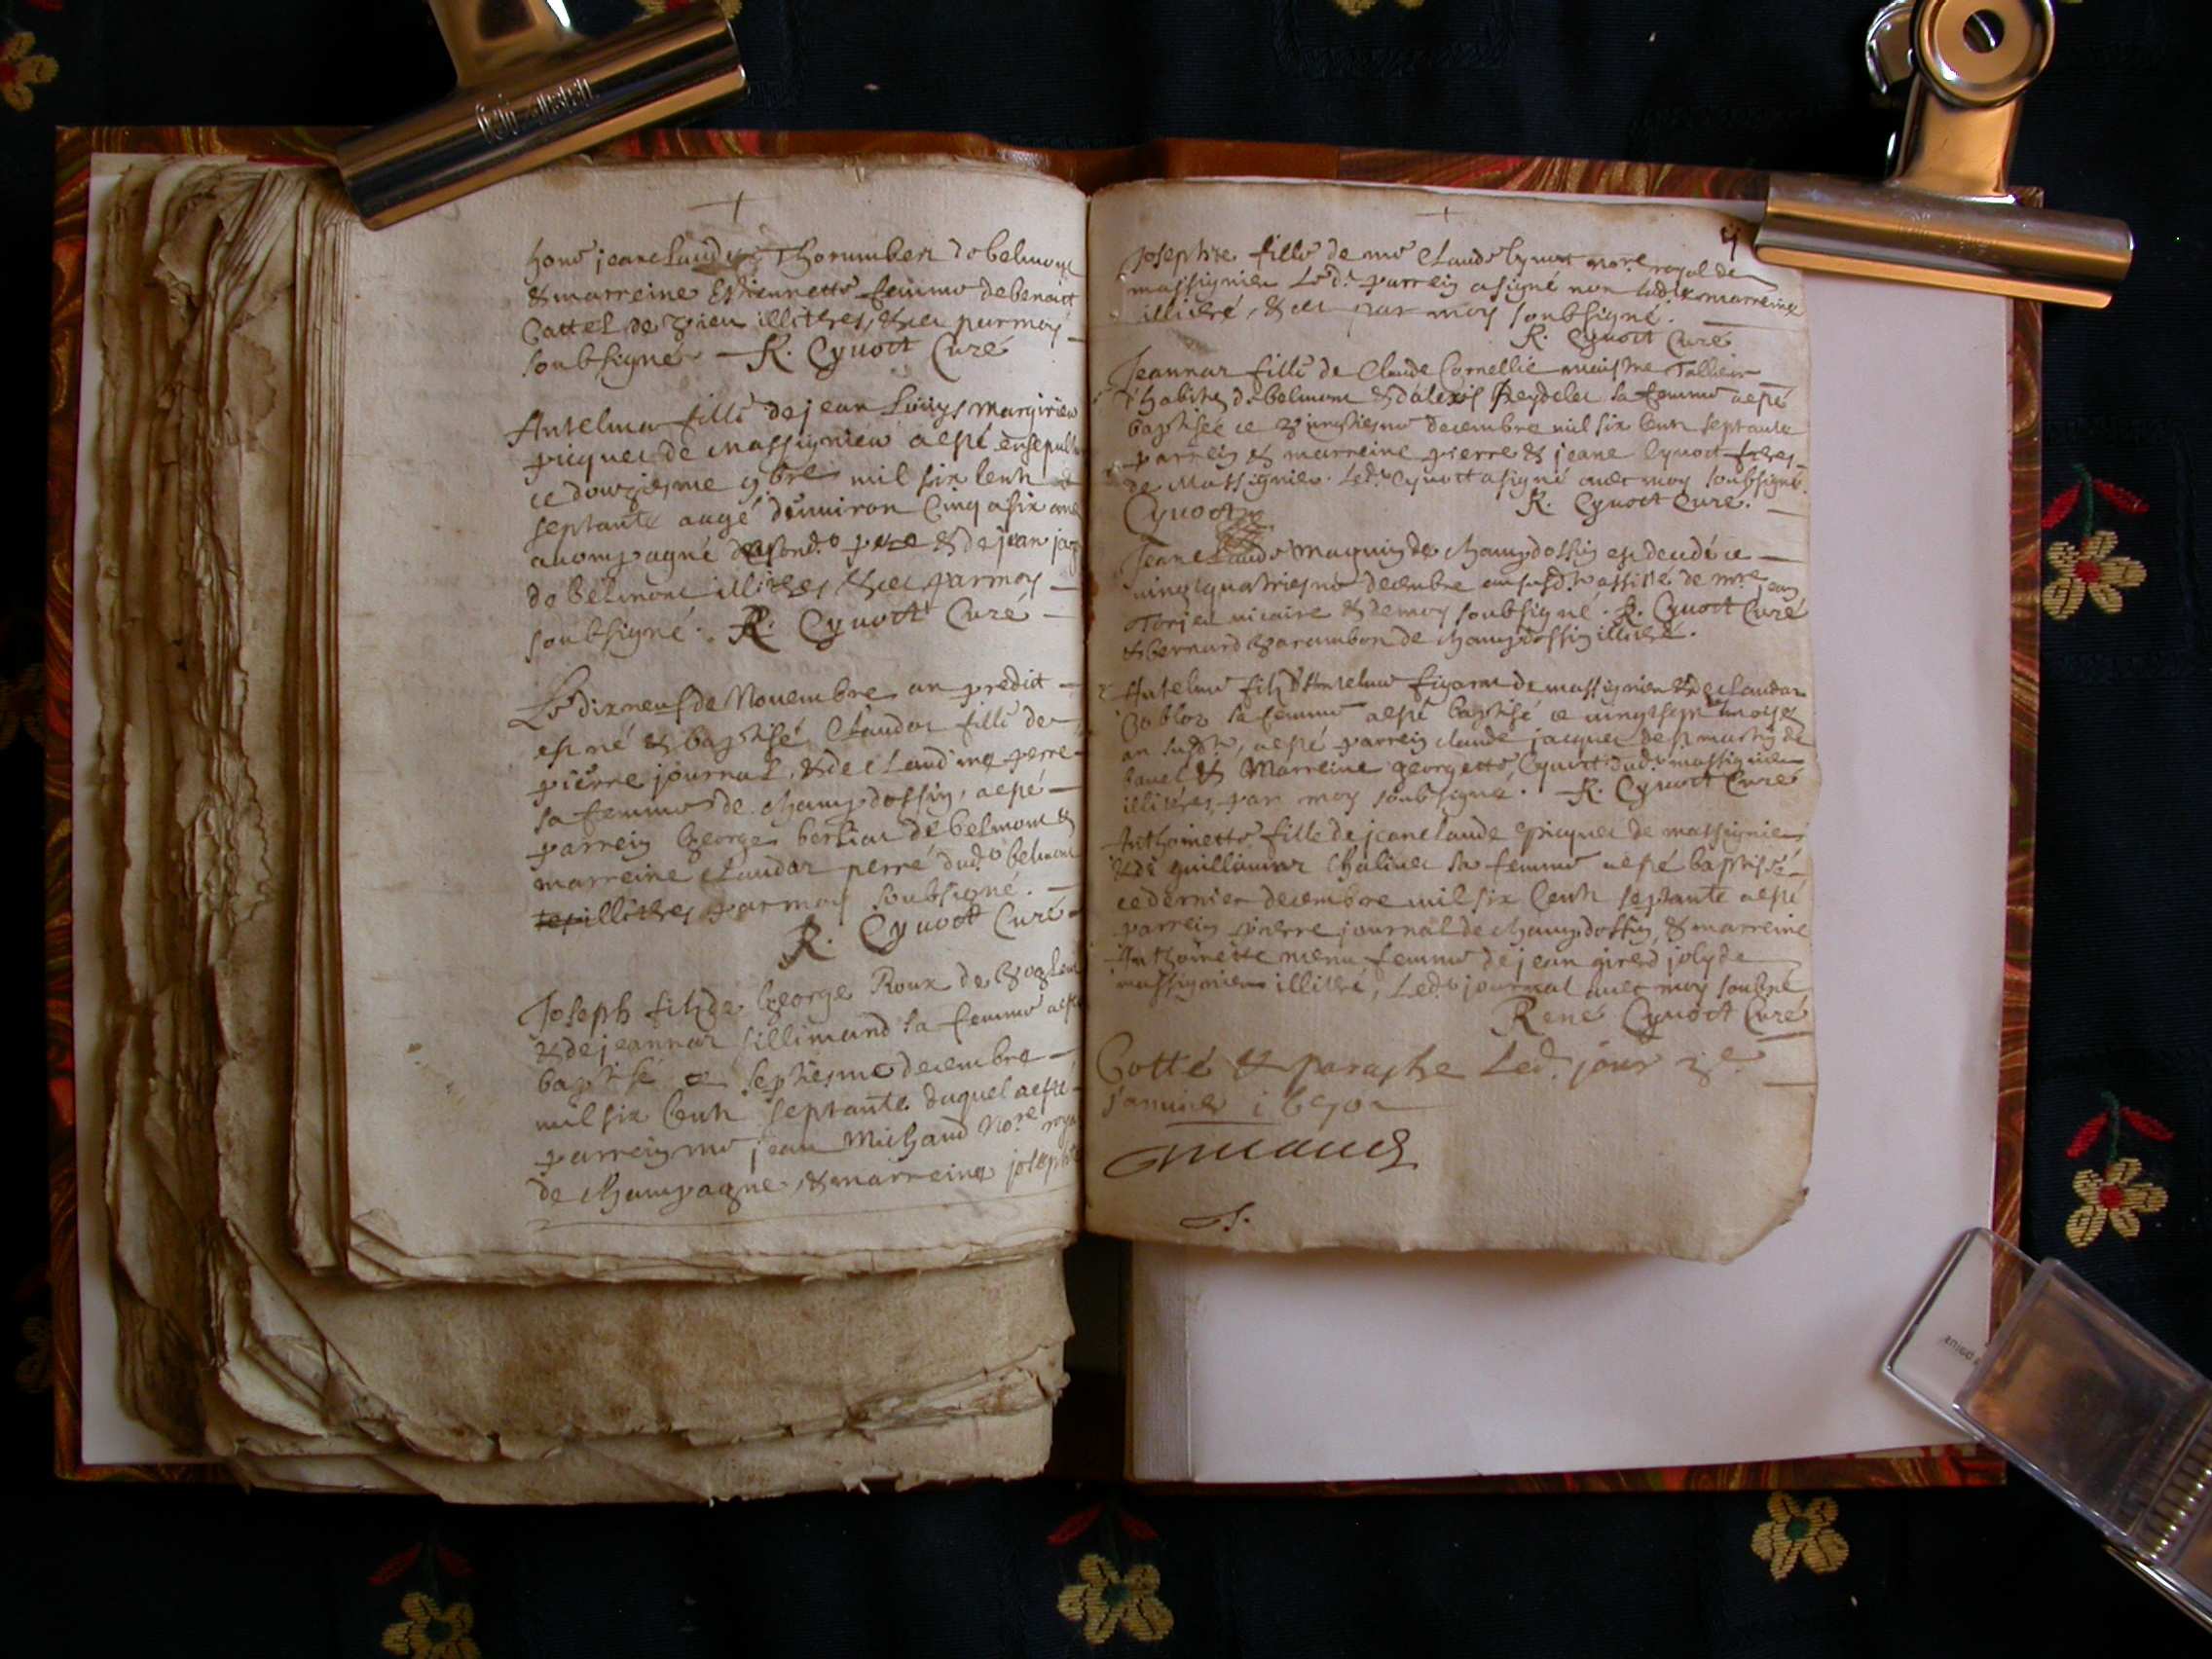 hono jeanclaude Thorumbert de belmont
& marreine Estiennette femme de benoict
Cattel de vieu illitéres, & ce par moy
soubsigné R. Cyvoct Curé
Antelma fille de jean Louys
picquet de Massignieu a esté ensepult
ce douziesme 9bre mil six cent
septante aagé d'environ Cinq a six ans
acompagné pere & de jean
de belmont illitéres & ce par moy
soubsigné. R. Cyvoct Curé
Le dixneuf de Novembre an predict
est né & baptisé Claudaz fille de
pierre journal, & de Claudine perre
sa femme de champdossin, a esté
parrein George berliat de belmont &
marreine Claudaz perré dud. belmont
illitéres par moy soubsigné.
R. Cyvoct Curé
Joseph filz de George Roux de
& de jeannaz sillimand sa femme a esté
baptisé ce septiesme decembre
mil six Cent septante duquel a esté
parrein me jean Michaud Nore royal
de champagne, & marreine josephte
4
Josephte fille de me Claude Cyvoct nore royal de
massignieu Led. parrein a signé non lad. marreine
illiteré, & ce par moy soubsigné.
R. Cyvoct Curé
Jeannaz fille de Claude Cornellie maistre
habitez de belmont & d'alexis Reydelet sa femme a esté
baptisée ce vingtiesme decembre mil six cent septante
parrein & marreine pierre & jeane Cyvoct
de Massignieu. Led. Cyvoct a signé avec moy soubsigné.
R. Cyvoct Curé.
Cyvoct
Jeane Claude Maguin de champdossin est decedé ce
vingtquatriesme decembre an susdt assisté de mre jean
vicaire & de moy soubsigné. R. Cyvoct Curé
& bernard de champdossin illiteré.
Antelme filz d'Antelme figuet de massignieu & de Claudaz
sa femme a esté baptisé ce vingtsept
an susdt, a esté parrein claude jacquet de st martin de
bavel & Marreine georgette Cyvoct dud. massignieu
illitéres par moy soubsigné. R. Cyvoct Curé
Anthoinette fille de jeanclaude picquet de massignieu
& de guillaumaz sa femme a esté baptisé
ce dernier decembre mil six Cent septante a esté
parrein pierre journal de champdossin, & marreine
Anthoinette femme de jean girerd joly de
massignieu illiteré, Led. journal avec moy soubné
René Cyvoct Curé
Cotté & paraphe Led. jour 3e
janvier 1670